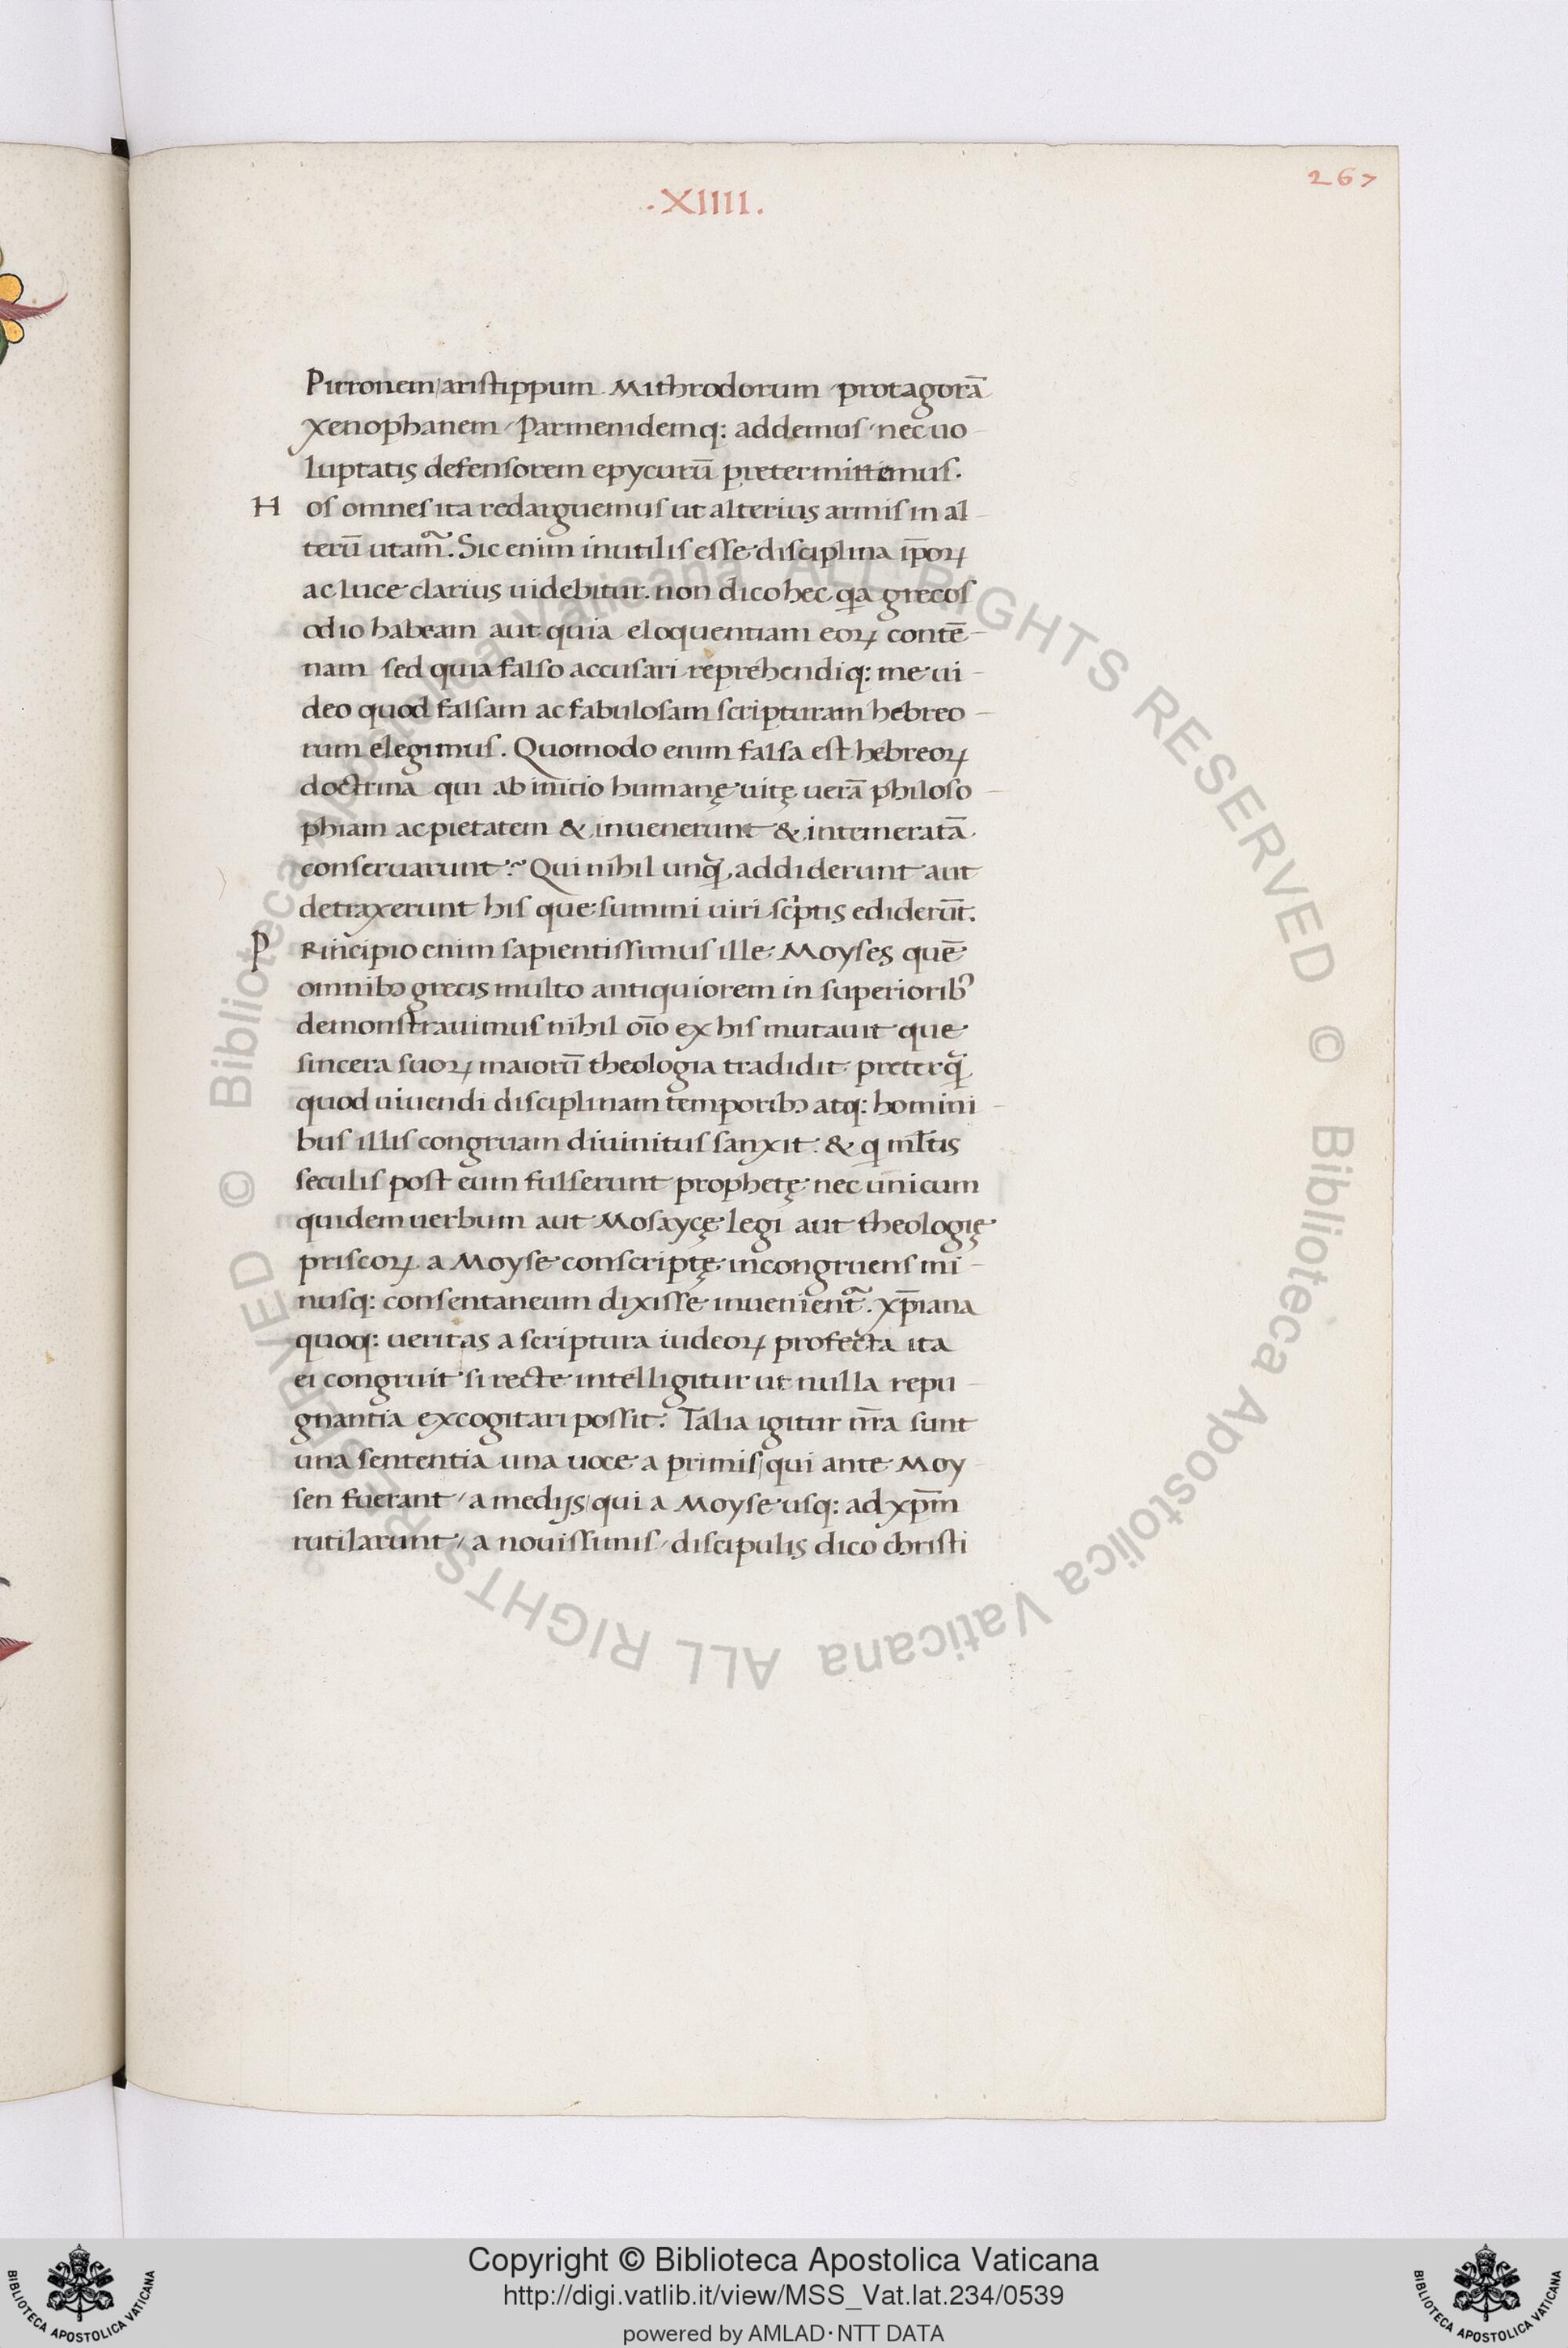 267
·XIIII·
Pirronem/aristippum Mithrodorum protagorā
xenophanem/Parmenidemq: addemus/nec uo-
luptatis defensorem epycurū pretermittemus.
Hos omnes ita redarguemus ut alterius armis in al-
terū utam̃. Sic enim inutilis esse disciplina ip̄oꝝ
ac luce clarius uidebitur. non dico hec qa grecos
odio habeam aut quia eloquentiam eoꝝ contē-
nam sed quia falso accusari reprehendiq: me ui-
deo quod falsam ac fabulosam scripturam hebreo-
rum elegimus. Quomodo enim falsa est hebreoꝝ
doctrina qui ab initio humanę uitę uerā philoso-
phiam ac pietatem & inuenerunt & intemeratā
conseruarunt? Qui nihil unq̃ addiderunt aut
detraxerunt his que summi uiri scͥptis ediderūt.
PRincipio enim sapientissimus ille Moyses quē
omnibꝫ grecis multo antiquiorem in superioribꝰ
demonstrauimus nihil oīo ex his mutauit que
sincera suoꝝ maiorū theologia tradidit preterq̃
quod uiuendi disciplinam temporibꝫ atq: homini-
bus illis congruam diuinitus sanxit. & qi ml̄tis
seculis post eum fulserunt prophetę nec unicum
quidem uerbum aut Mosaycę legi aut theologię
priscoꝝ a Moyse conscriptę incongruens mi-
nusq: consentaneum dixisse inuenient̃. xp̄iana
quoq: ueritas a scriptura iudeoꝝ profecta ita
ei congruit si recte intelligitur ut nulla repu-
gnantia excogitari possit. Talia igitur nr̄a sunt
una sententia una uoce a primis/qui ante Moy
sen fuerant/a medijs/qui a Moyse usq: ad xp̄m
rutilarunt/a nouissimis/discipulis dico christi
© Biblioteca Apostolica Vaticana ALL RIGHTS RESERVED © Biblioteca Apostolica Vaticana ALL RIGHTS RESERVED
Copyright © Biblioteca Apostolica Vaticana
http://digi.vatlib.it/view/MSS_Vat.lat.234/0539
powered by AMLAD·NTT DATA
BIBLIOTECA APOSTOLICA VATICANA
BIBLIOTECA APOSTOLICA VATICANA